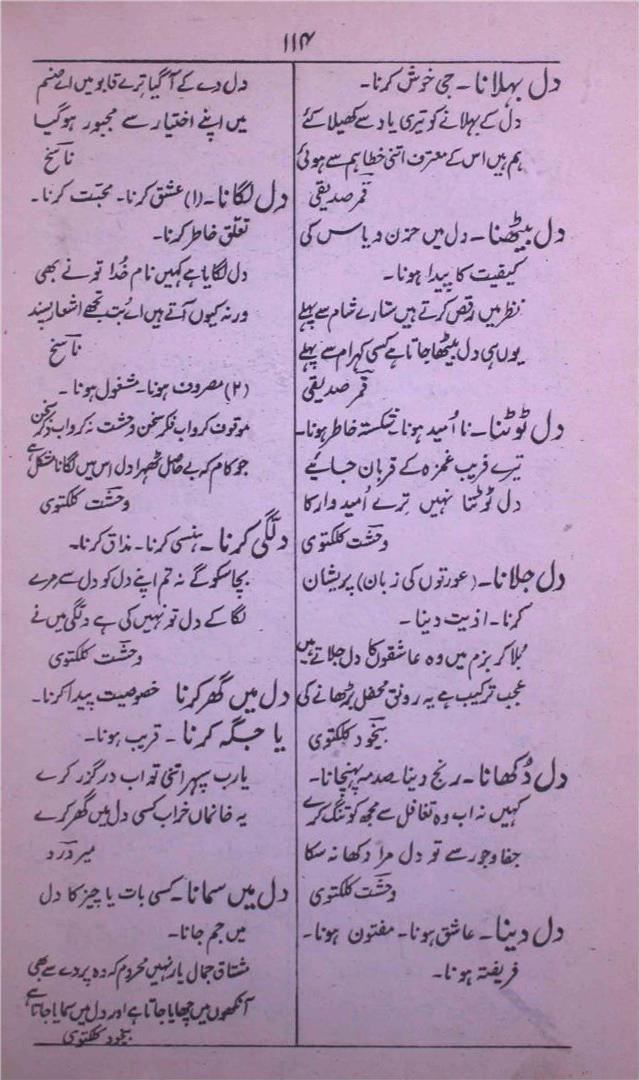 ۱۱۴
دل بہلانا۔ جی خوش کرنا۔
دل کے بہلانے کو تیری یاد سے کھیلا کئے
ہم ہیں اس کے معترف اتنی خطا ہم سے ہوئی
قمر صدیقی
دل بیٹھنا۔ دل میں حزن و یاس کی
کیفیت کا پیدا ہونا۔
نظر میں رقص کرتے ہیں ستارے شام سے پہلے
یوں ہی دل بیٹھا جاتا ہے کسی کہرام سے پہلے
قمر صدیقی
دل ٹوٹنا۔ نا اُمید ہونا۔ شکستہ خاطر ہونا۔
تیرے فریب غمزہ کے قربان جائیے
دل ٹوٹتا نہیں ترے اُمیدوار کا
وحشت کلکتوی
دل جلانا۔ (عورتوں کی زبان) پریشان
کرنا۔ اذیت دینا۔
بُلا کر بزم میں وہ عاشقوں کا دل جلاتے ہیں
عجب ترکیب ہے یہ رونق محفل بڑھانے کی
بیخود کلکتوی
دل دُکھانا۔ رنج دینا۔ صدمہ پہنچانا۔
کہیں نہ اب وہ تغافل سے مجھ کو تنگ کرے
جفا و جور سے تو دل مرا دکھا نہ سکا
وحشت کلکتوی
دل دینا۔ عاشق ہونا۔ مفتون ہونا۔
فریفتہ ہونا۔
دل دے کے آ گیا ترے قابو میں اے صنم
میں اپنے اختیار سے مجبور ہو گیا
ناسخ
دل لگانا۔ (۱) عشق کرنا۔ محبّت کرنا۔
تعلّق خاطر کرنا۔
دل لگایا ہے کہیں نام خُدا تو نے بھی
ورنہ کیوں آتے ہیں اے بُت تجھے اشعار پسند
ناسخ
(۲) مصروف ہونا۔ مشغول ہونا۔
موقوف کرو اب فکر سخن وحشت نہ کرو اب ذکر سخن
جو کام کہ بے حاصل ٹھہرا دل اس میں لگانا مشکل ہے
وحشت کلکتوی
دلّگی کرنا۔ ہنسی کرنا۔ مذاق کرنا۔
بچا سکو گے نہ تم اپنے دل کو دل سے مرے
لگا کے دل تو نہیں کی ہے دلگی میں نے
وحشت کلکتوی
دل میں گھر کرنا خصوصیت پیدا کرنا۔
یا جگہ کرنا۔ قریب ہونا۔
یارب سپہر اتنی تو اب در گزر کرے
یہ خانماں خراب کسی دل میں گھر کرے
میر درد
دل میں سمانا۔ کسی بات یا چیز کا دل
میں جم جانا۔
مشتاق جمال یار نہیں محروم کہ وہ پردے سے بھی
آنکھوں میں چھایا جاتا ہے اور دل میں سمایا جاتا ہے
بیخود کلکتوی